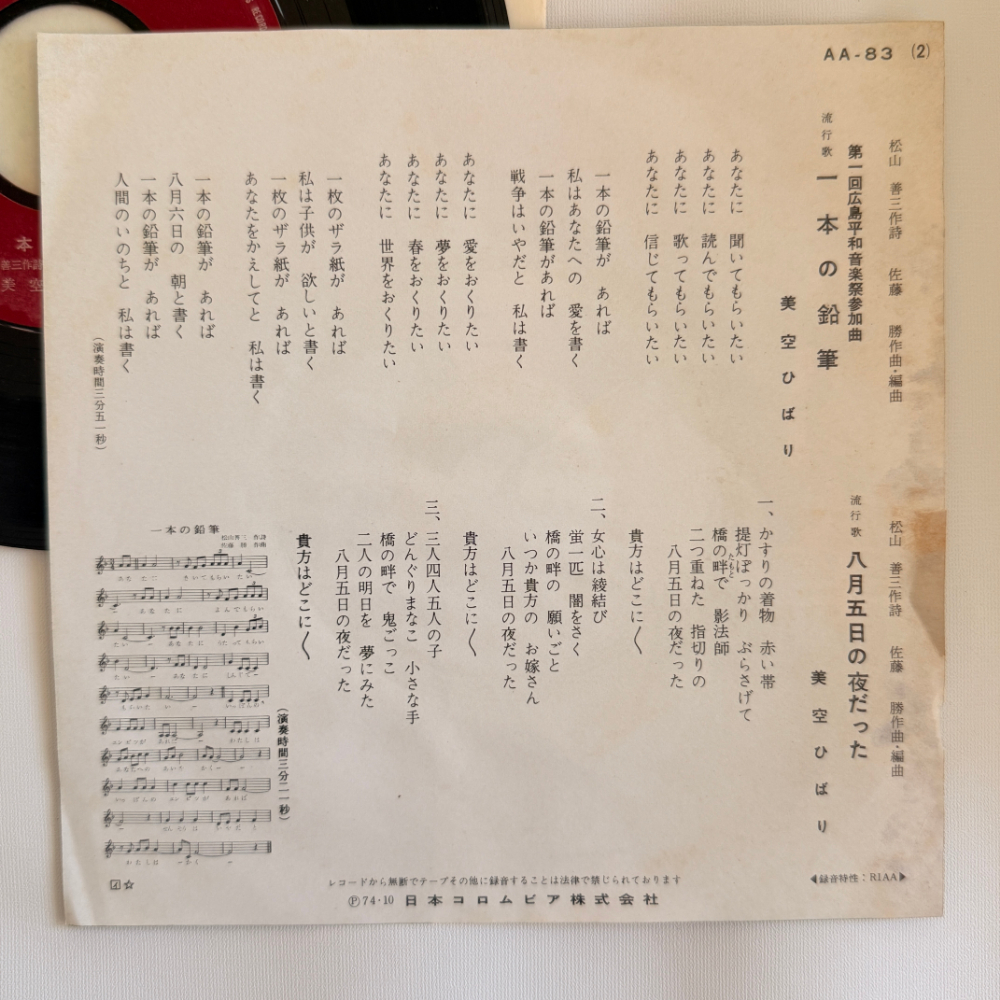 AA-83 (2)
松山 善三作詩 佐藤 勝作曲・編曲
第一回広島平和音楽祭参加曲
流行歌 一本の鉛筆
美空ひばり
あなたに 聞いてもらいたい
あなたに 読んでもらいたい
あなたに 歌ってもらいたい
あなたに 信じてもらいたい
一本の鉛筆が あれば
私はあなたへの 愛を書く
一本の鉛筆があれば
戦争はいやだと 私は書く
あなたに 愛をおくりたい
あなたに 夢をおくりたい
あなたに 春をおくりたい
あなたに 世界をおくりたい
一枚のザラ紙が あれば
私は子供が 欲しいと書く
一枚のザラ紙が あれば
あなたをかえしてと 私は書く
一本の鉛筆が あれば
八月六日の 朝と書く
一本の鉛筆が あれば
人間のいのちと 私は書く
(演奏時間三分五一秒)
松山 善三作詩 佐藤 勝作曲・編曲
流行歌 八月五日の夜だった
美空ひばり
一、かすりの着物 赤い帯
提灯ぽっかり ぶらさげて
橋の畔で 影法師
たもと
二つ重ねた 指切りの
八月五日の夜だった
貴方はどこに〱
二、女心は綾結び
蛍一匹 闇をさく
橋の畔の 願いごと
いつか貴方の お嫁さん
八月五日の夜だった
貴方はどこに〱
三、三人四人五人の子
どんぐりまなこ 小さな手
橋の畔で 鬼ごっこ
二人の明日を 夢にみた
八月五日の夜だった
貴方はどこに〱
(演奏時間三分二一秒)
一本の鉛筆
松山善三 作詩
佐藤 勝 作曲
レコードから無断でテープその他に録音することは法律で禁じられております
Ⓟ74・10 日本コロムビア株式会社
◀録音特性：RIAA▶
本
善三作詩
美 空